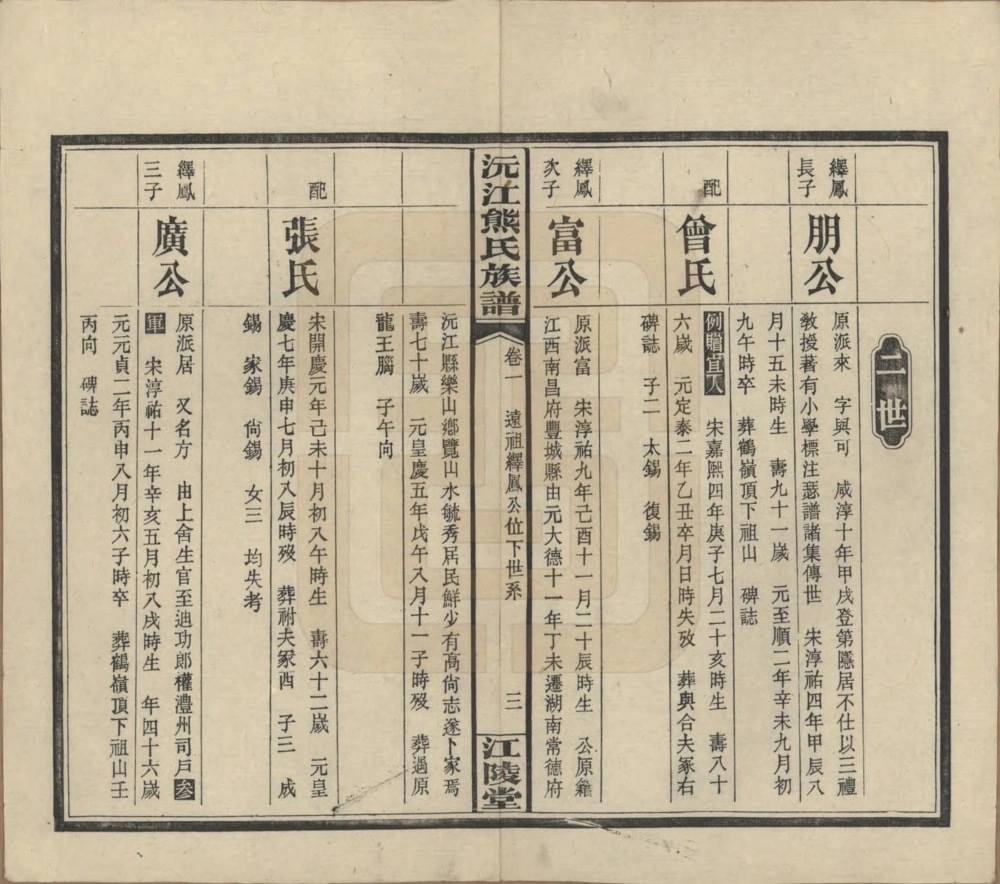 二世
繹鳳長子
朋公
原派來　字與可　咸淳十年甲戌登第隱居不仕以三禮
教授著有小學標注瑟譜諸集傳世　宋淳祐四年甲辰八
月十五未時生　壽九十一歲　元至順二年辛未九月初
九午時卒　葬鶴嶺頂下祖山　碑誌
配
曾氏
例贈宜人　宋嘉熙四年庚子七月二十亥時生　壽八十
六歲　元定泰二年乙丑卒月日時失攷　葬與合夫冢右
碑誌　子二　太錫　復錫
繹鳳次子
富公
原派富　宋淳祐九年己酉十一月二十辰時生　公原籍
江西南昌府豐城縣由元大德十一年丁未遷湖南常德府
沅江熊氏族譜
卷一　遠祖繹鳳公位下世系
三
江陵堂
沅江縣樂山鄉覽山水毓秀居民鮮少有高尚志遂卜家焉
壽七十歲　元皇慶五年戊午八月十一子時歿　葬過原
龍王腦　子午向
配
張氏
宋開慶元年己未十月初八午時生　壽六十二歲　元皇
慶七年庚申七月初八辰時歿　葬祔夫冢西　子三　成
錫　家錫　尙錫　女三　均失考
繹鳳三子
廣公
原派居　又名方　由上舍生官至迪功郎權澧州司戶參
軍　宋淳祐十一年辛亥五月初八戌時生　年四十六歲
元元貞二年丙申八月初六子時卒　葬鶴嶺頂下祖山壬
丙向　碑誌